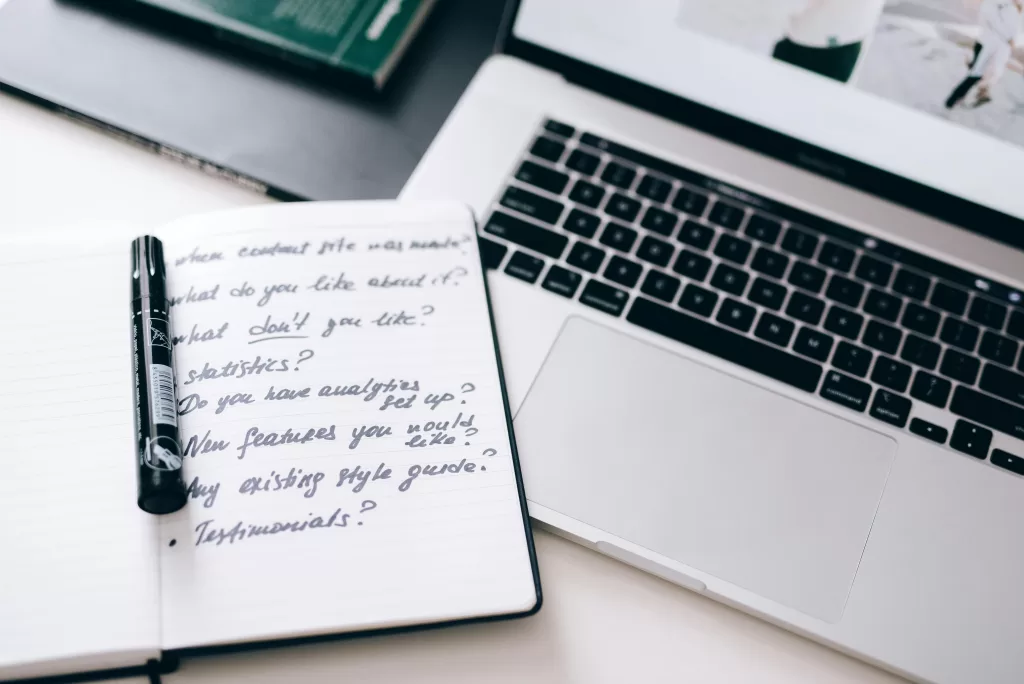 when site was made?
what do you like about it?
what don't you like?
statistics?
Do you have analytics
set up?
New features you would
like?
Any existing style guide?
• Testimonials?
command
option